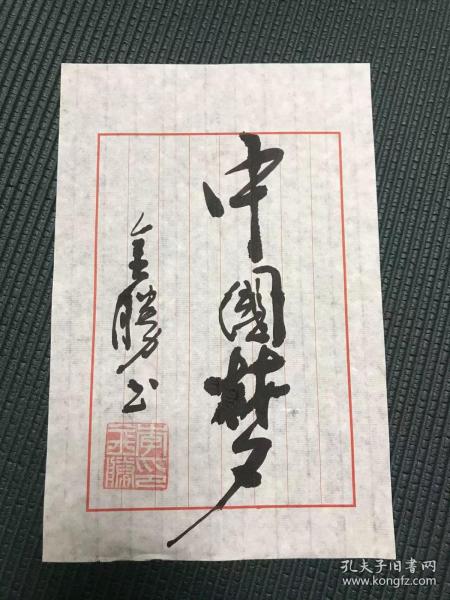 中國梦
金勝书
孔夫子旧书网
www.kongfz.com